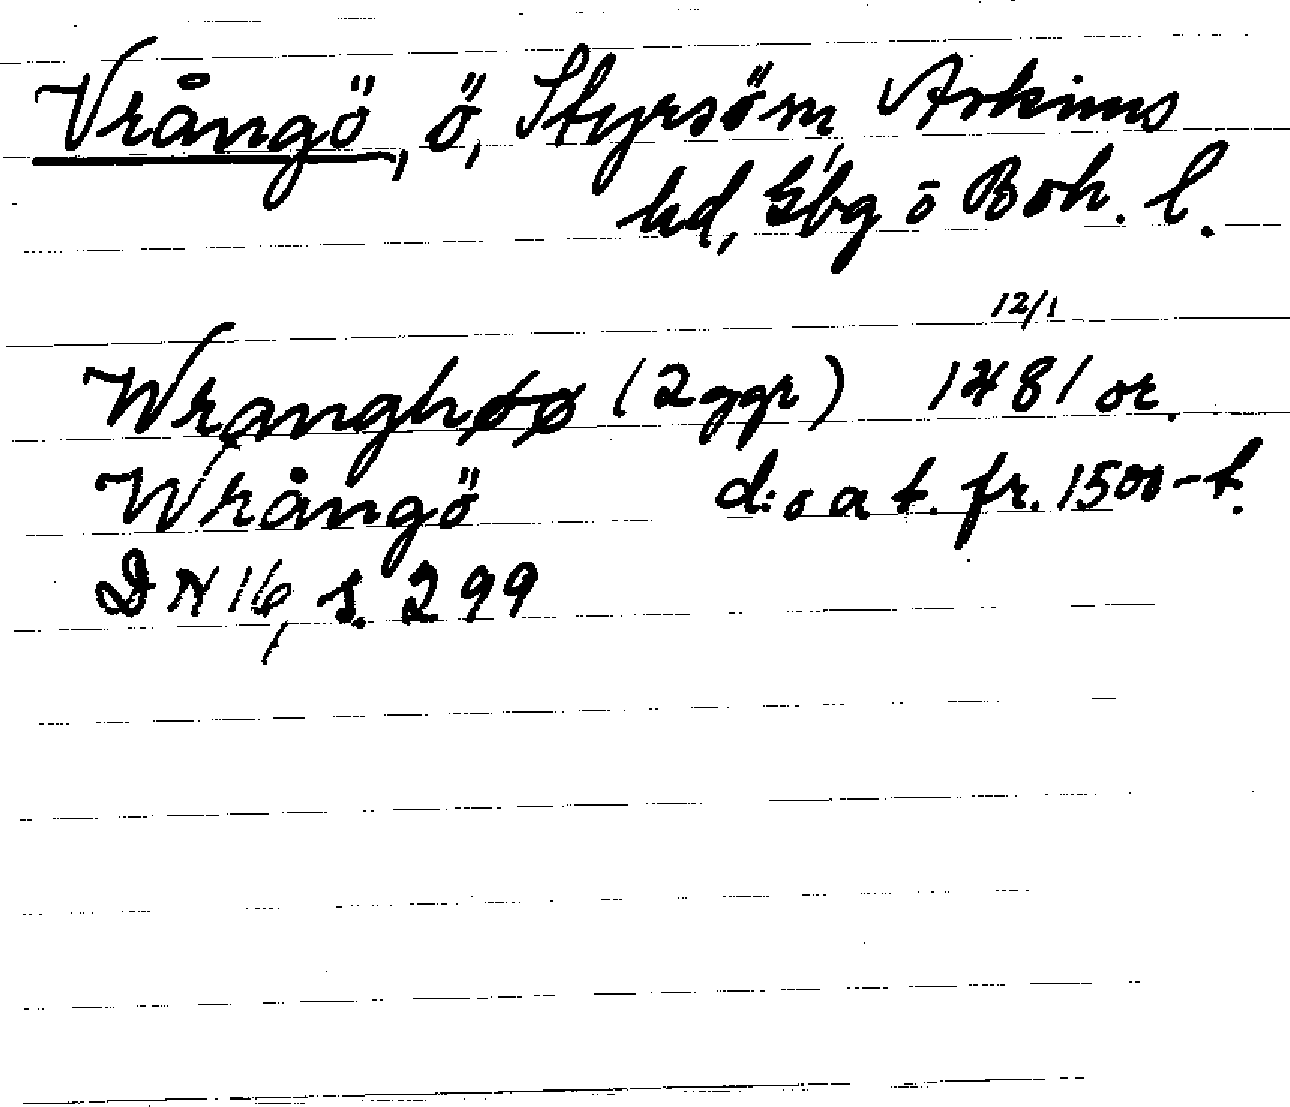 Vrångö, ö, Styrsö sn, V Askims
hd, Gbg o Boh. l.
12/1
Wranghøø (2 ggr) 1481 or.
Wrångö d:o a t. fr. 1500-t.
DN 16, s. 299